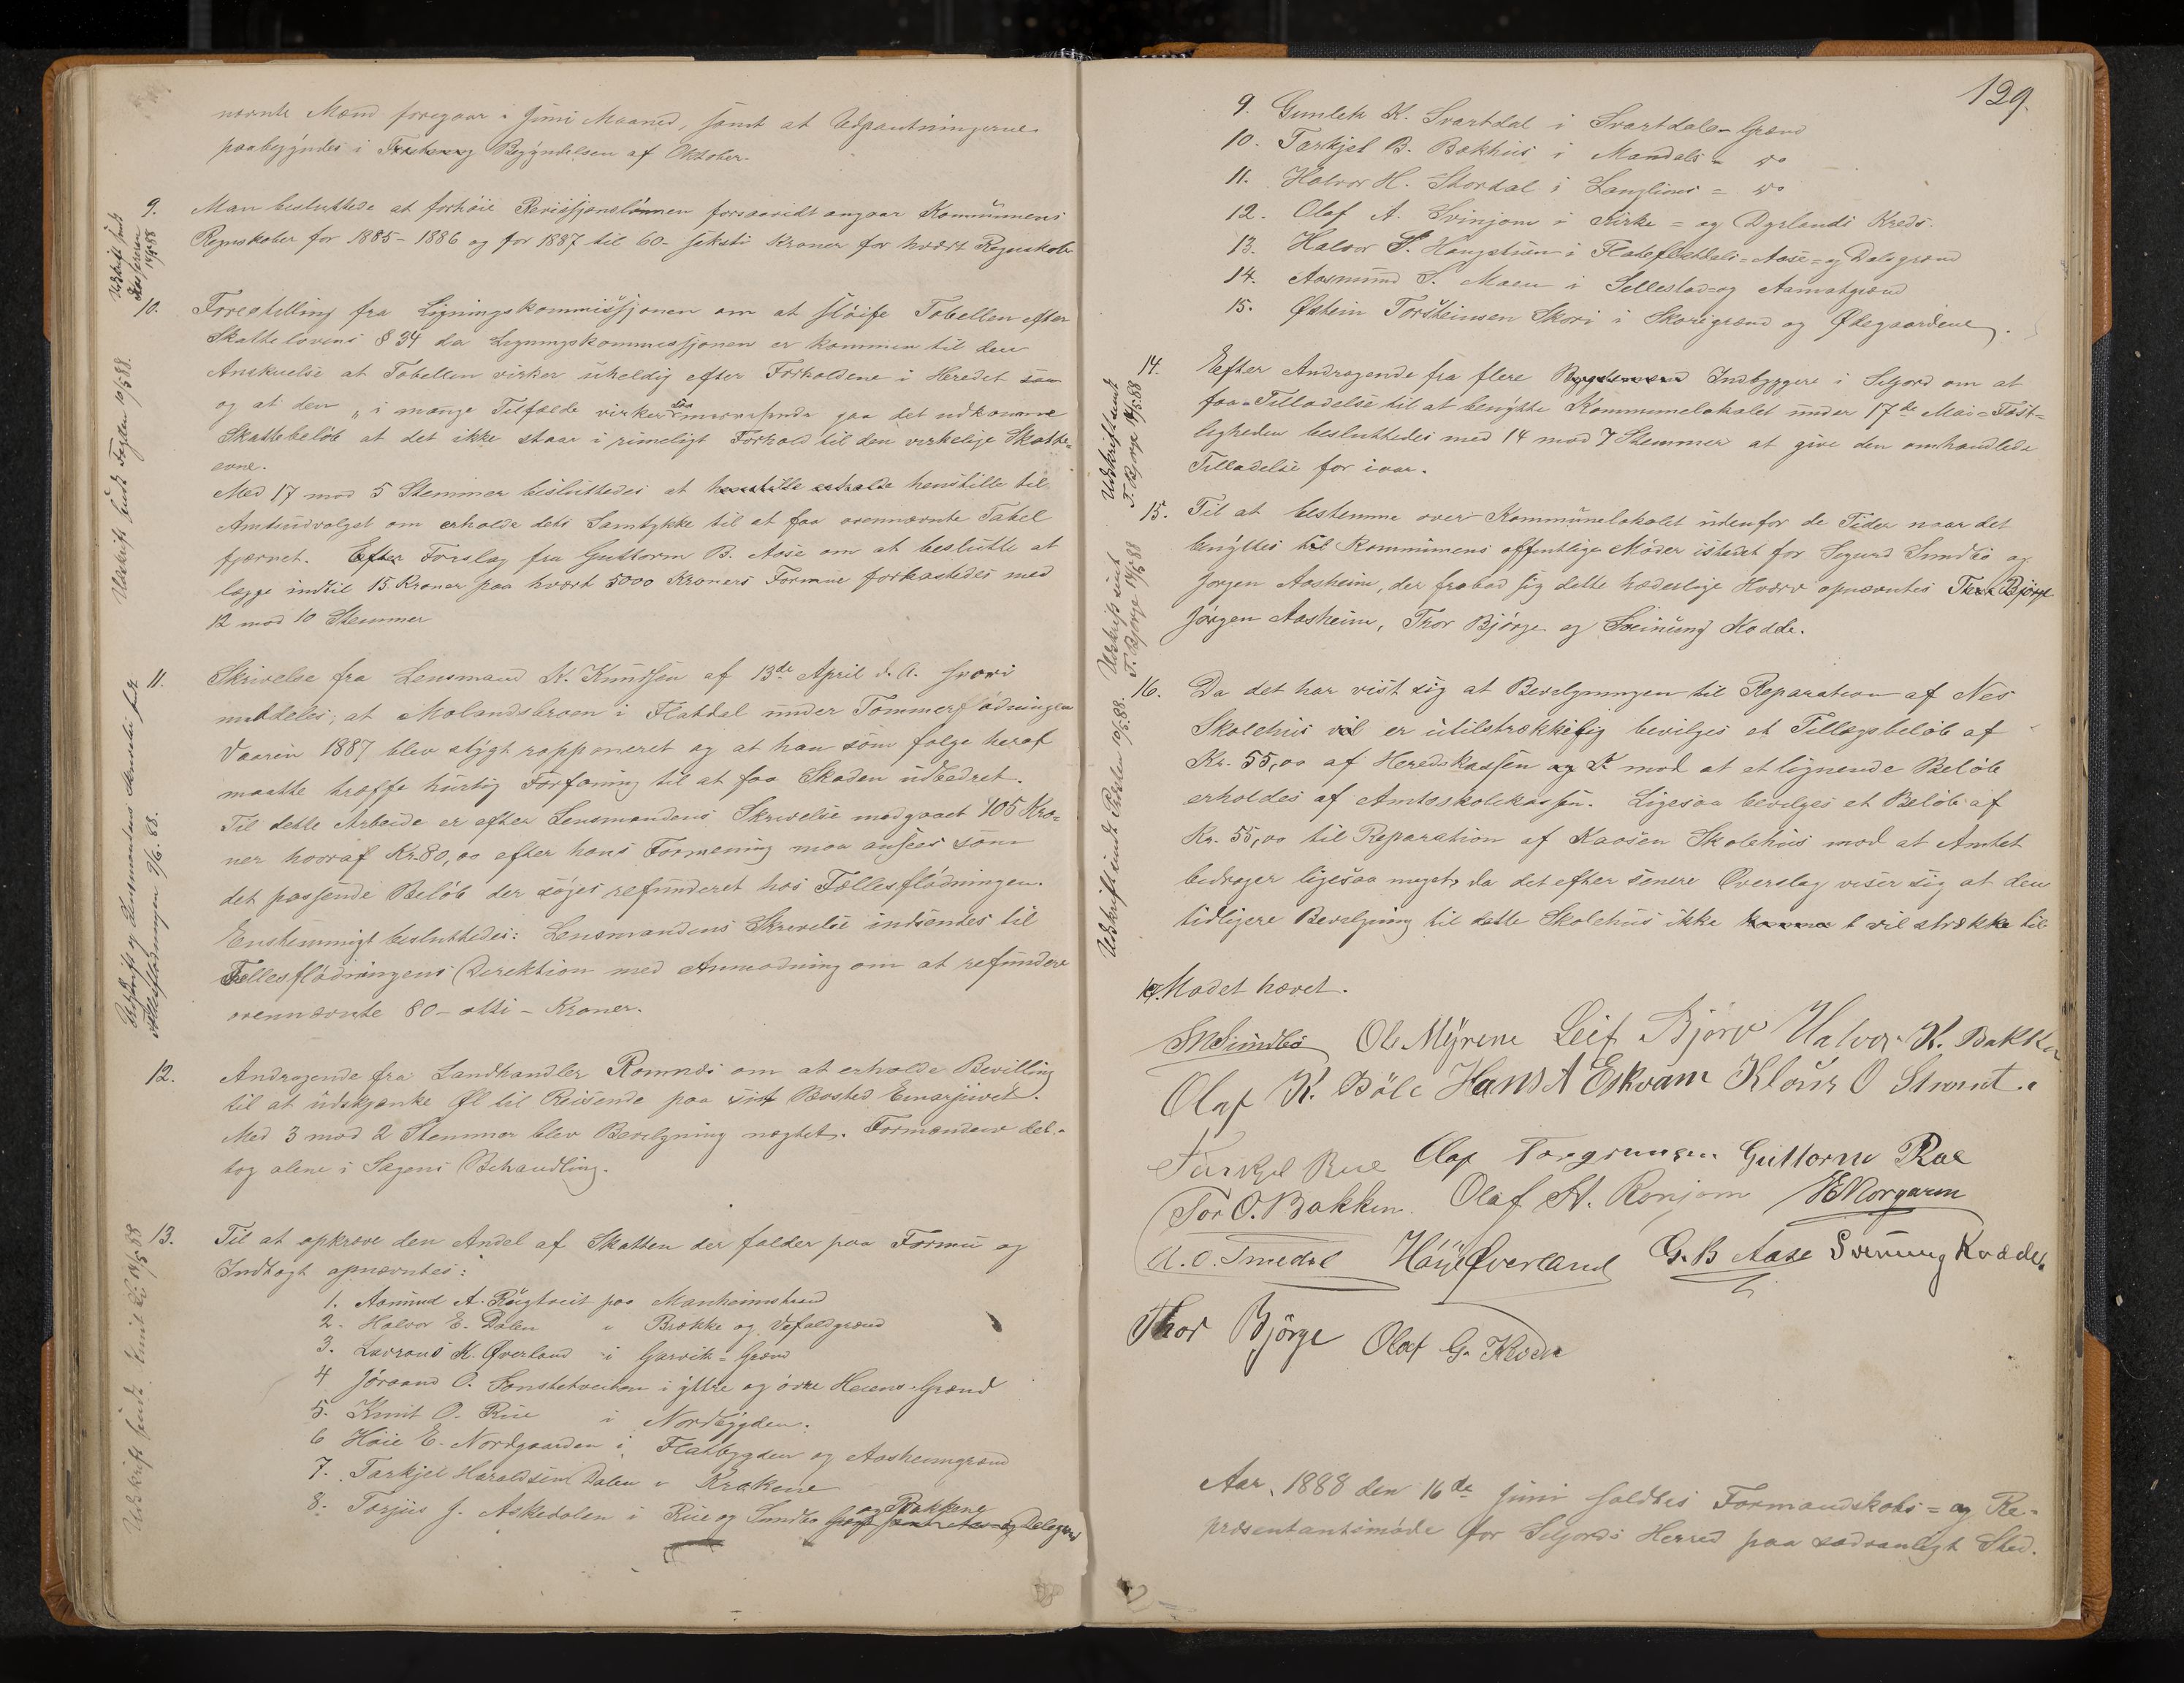 nævnte Mænd foregaar i Juni Maaned, samt at Udpantningerne
paabegyndes i Begyndelsen af Oktober.
9. Man besluttede at forhøie Revisjonslønnen forsaavidt angaar Kommunens
Regnskaber for 1885-1886 og for 1887 til 60- seksti Kroner for hvært Regnskab
10. Forestilling fra Ligningskommissjonen om at sløife Tabellen efter
Skattelovens § 34 da Ligningskommissjonen er kommen til den
Anskuelse at Tabellen virker uheldig efter Forholdene i Heredet som
og at den „i mange Tilfælde virker saa paa det udkomne
Skattebeløb at det ikke staar i rimeligt Forhold til den virkelige Skatte=
evne.
Med 17 mod 5 Stemmer besluttedes at henstille erholde henstille til
Amtsudvalget om erholde dets Samtykke til at faa ovennævnte Tabel
fjærnet. Efter Forslag fra Guttorm B. Aase om at beslutte at
lægge indtil 15 Kroner paa hvært 5000 Kroners Formue forkastedes med
12 mod 10 Stemmer
11. Skrivelse fra Lensmand K. Knudsen af 13de April d. A. hvori
meddeles, at Molandsbroen i Flatdal under Tømmerflødningen
Vaaren 1887 blev stygt ramponeret og at han som følge heraf
maatte træffe hurtig Forføining til at faa Skaden udbedret.
Til dette Arbeide er efter Lensmandens Skrivelse medgaaet 105 Kro=
ner hvoraf Kr. 80,00 efter hans Formening maa ansees som
det passende Beløb der søges refunderet hos Fællesflødningen.
Enstemmigt besluttedes: Lensmandens Skrivelse indsendes til
Fællesflødningens Direktion med Anmodning om at refundere
ovennævnte 80 - otti - Kroner.
12. Andragende fra Landhandler Romnes om at erholde Bevilling
til at udskjænke Øl til Reisende paa sit Bosted
Med 3 mod 2 Stemmer blev Bevilgning nægtet. Formændene del=
tog alene i Sagens Behandling.
13. Til at opkræve den Andel af Skatten der falder paa Formue og
Indtægt opnævntes:
1. Aamund A. Rugtveit paa Manheimstrand
2. Halvor E. Dalen " Brække og Vefaldgrænd
3. Lavrans K. Øverland i Garvik= Grænd
4 Jøraand O. i yttre og øvre Heiens-Grænd
5. Knut O. Rue i Nordbygden.
6 Høie E. Nordgaarden i Flatbygden og Aasheimgrænd
7. Tarkjel Haraldsen Dalen i Krakene
8. Torjus J. Askedalen i Rue og Sundbø og Bakkene
Udskrift sendt Kassereren 14/5 88
Udskrift sendt Fogden 10/5 88.
Udskrift og Lensmandens Skrivelse sendt Fællesflødningen 2/6. 88.
Udskrift sendt 14/5 88
129.
9. Gunlek K. Svartdal i Svartdals-Grænd
10. Tarkjel B. Bakhus i Mandals = do
11. Halvor H. Stordal i Langlims = do
12. Olaf A. Svinjom i Kirke = og Dyrlands Kreds.
13. Halvor S. Haugstuen i Flatdals=Aase=og Dalsgrænd
14. Aasmund S. Moen i Sellestad=og Aamotgrænd
15. Østein Torsteinsen Skori i Skorigrænd og Ødegaardene.
14. Efter Andragende fra flere Indbyggere i Seljord om at
faa Tilladelse til at benytte Kommunelokalet under 17de Mai=Fæst=
ligheden besluttedes med 14 mod 7 Stemmer at give den omhandlede
Tilladelse for iaar.
15. Til at bestemme over Kommunelokalet udenfor de Tider naar det
benyttes til Kommunens offentlige Møder istedet for Sigurd Sundbø og
Jørgen Aasheim, der frabad sig dette hæderlige Hværv opnævntes Thor Bjørge
Jørgen Aasheim, Thor Bjørge og Sveinung Kodde.
16. Da det har vist sig at Bevilgningen til Reparation af Nes
Skolehus vil er utilstrækkelig bevilges et Tillægsbeløb af
Kr. 55,00 af Heredskassen og mod at et lignende Beløb
erholdes af Amtsskolekassen. Ligesaa bevilges et Beløb af
Kr. 55,00 til Reparation af Kaasen Skolehus mod at Amtet
bedrager ligesaa meget, da det efter senere Overslag viser sig at den
tidligere Bevilgning til dette Skolehus ikke vil strække til
17. Mødet hævet.
Sundbø Ole Myrene Leif Bjørge Halvor K. Bakken
Olaf K. Bøle Hans A Eskvam Kloms O
Tarkjel Rue Olaf Torgrimsen Guttorm Rae
Tor O. Bakken. Olaf H. Rønjom
A. O. Høie Øverland G. B Aase Sveinung Kodde
Thor Bjørge Olaf G. Kleven
Udskrift sendt T. Bjørge 14/5.88
Udskrift sent T. Bjørge 14/5 88
Udskrift sendt 10/5.88.
Aar 1888 den 16de Juni holdtes Formandskabs= og Re=
præsentantsmøde for Seljords Herred paa sædvanligt Sted.